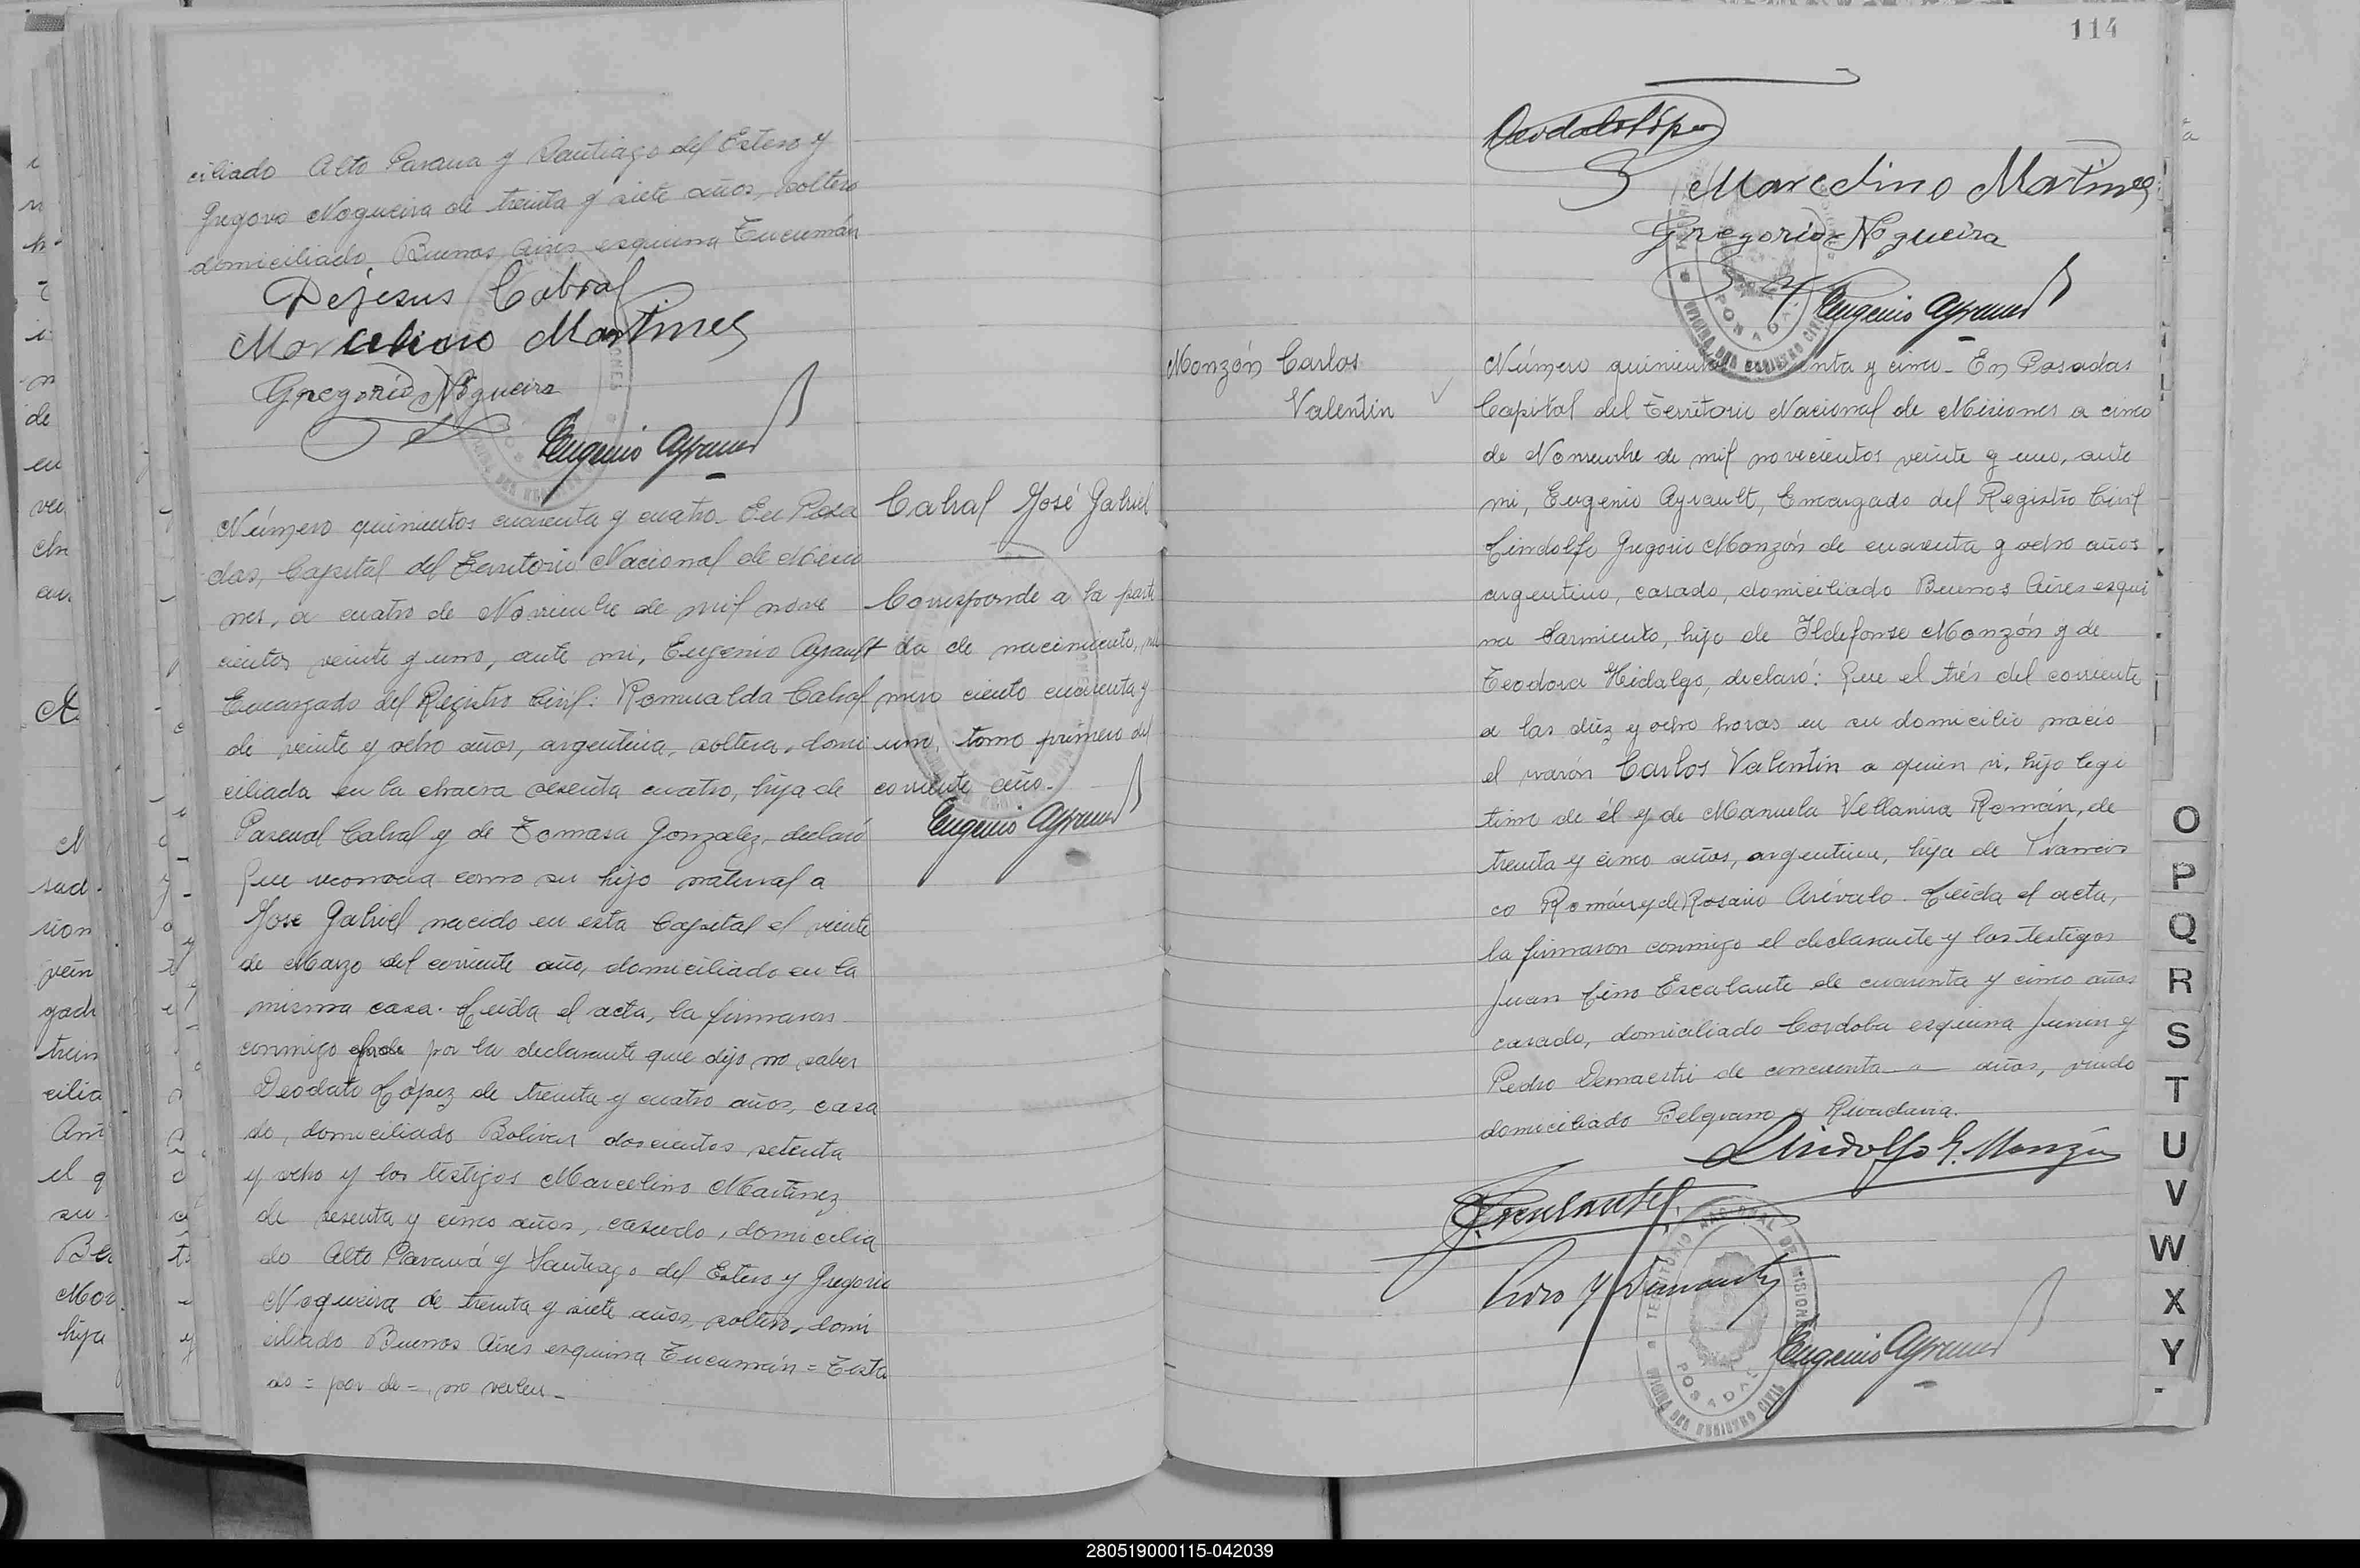 ciliado Alto Parana y Santiago del Estero y
Gregorio Nogueira de treinta y siete años, soltero
domiciliado Buenos Aires esquina Tucumán
Dejesus Cabral
Marcelino Martines
Gregorio Nogueira
Eugenio Ayrault
Número quinientos cuarenta y cuatro. En Posa
das, Capital del Territorio Nacional de Misio
nes, a cuatro de Noviembre de mil nove
cientos veinte y uno, ante mi, Eugenio Ayrault
Encargado del Registro Civil: Romualda Cabral
de veinte y ocho años, argentina, soltera, domi
ciliada en la chacra sesenta cuatro, hija de
Pascual Cabral y de Tomasa Gonzalez, declaró
Que reconocia como su hijo natural a
Jose Gabriel nacido en esta Capital el veinte
de Marzo del corriente año, domiciliado en la
misma casa. Leida el acta, la firmaron
conmigo por la declarante que dijo no saber
Deodato López de treinta y cuatro años, casa
do, domiciliado Bolivar doscientos setenta
y ocho y los testigos Marcelino Martinez
de sesenta y cinco años, casado, domicilia
do Alto Paraná y Santiago del Estero y Gregorio
Nogueira de treinta y siete años, soltero, domi
ciliado Buenos Aires esquina Tucumán = Testa
do = por de =, no valen_
Cabral José Gabriel
Corresponde a la parti
da de nacimiento, nú
mero ciento cuarenta y
uno, tomo primero del
corriente año.
Eugenio Ayrault
114
Deodato López
Marcelino Martines
Gregorio Nogueira
Eugenio Ayrault
Monzón Carlos
Valentin
Número quinientos cuarenta y cinco_ En Posadas
Capital del Territorio Nacional de Misiones a cinco
de Noviembre de mil novecientos veinte y uno, ante
mi, Eugenio Ayrault, Encargado del Registro Civil
Lindolfo Gregorio Monzón de cuarenta y ocho años
argentino, casado, domiciliado Buenos Aires esqui
na Sarmiento, hijo de Ildefonso Monzón y de
Teodora Hidalgo, declaró: Que el trés del corriente
a las diez y ocho horas en su domicilio nació
el varón Carlos Valentin a quien vi, hijo legi
timo de él y de Manuela Román, de
treinta y cinco años, argentina, hija de Francis
co Román y de Rosario Arévalo. Leida el acta,
la firmaron conmigo el declarante y los testigos
Juan Lino Escalante de cuarenta y cinco años
casado, domiciliado Cordoba esquina Junin y
Pedro Demaestri de cincuenta años, viudo
domiciliado Belgrano y Rivadavia.
Lindolfo G. Monzón
J. Escalante
Pedro Demaestri
TERRITORIO NACIONAL DE MISIONES
POSADAS
OFICINA DEL REGISTRO CIVIL
Eugenio Ayrault
O
P
Q
R
S
T
U
V
W
X
Y
280519000115-042039